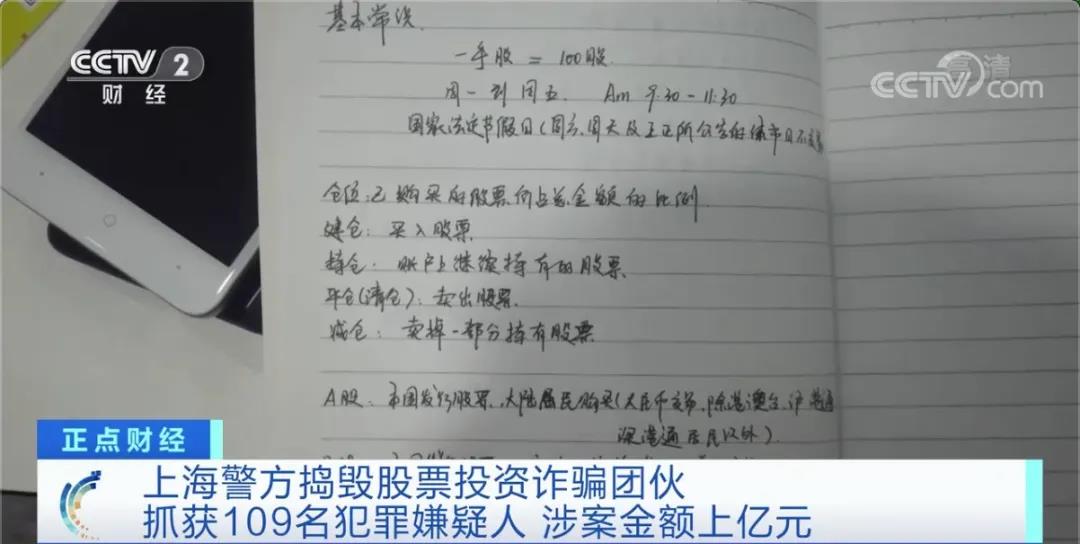 CCTV 2
财经
高清
CCTV.com
基本常识
一手股 = 100股
周一到周五. Am 9:30-11:30
国家法定节假日(周六、周天及上证所公告的休市日不交易
仓位:已购买的股票价占总金额的比例
建仓:买入股票
持仓:账户上继续持有的股票
平仓(清仓):卖出股票
减仓:卖掉一部分持有股票
A股:本国发行股票、大陆居民购买(人民币交易,除港澳台,沪港通
深港通居民以外).
正点财经
上海警方捣毁股票投资诈骗团伙
抓获109名犯罪嫌疑人 涉案金额上亿元